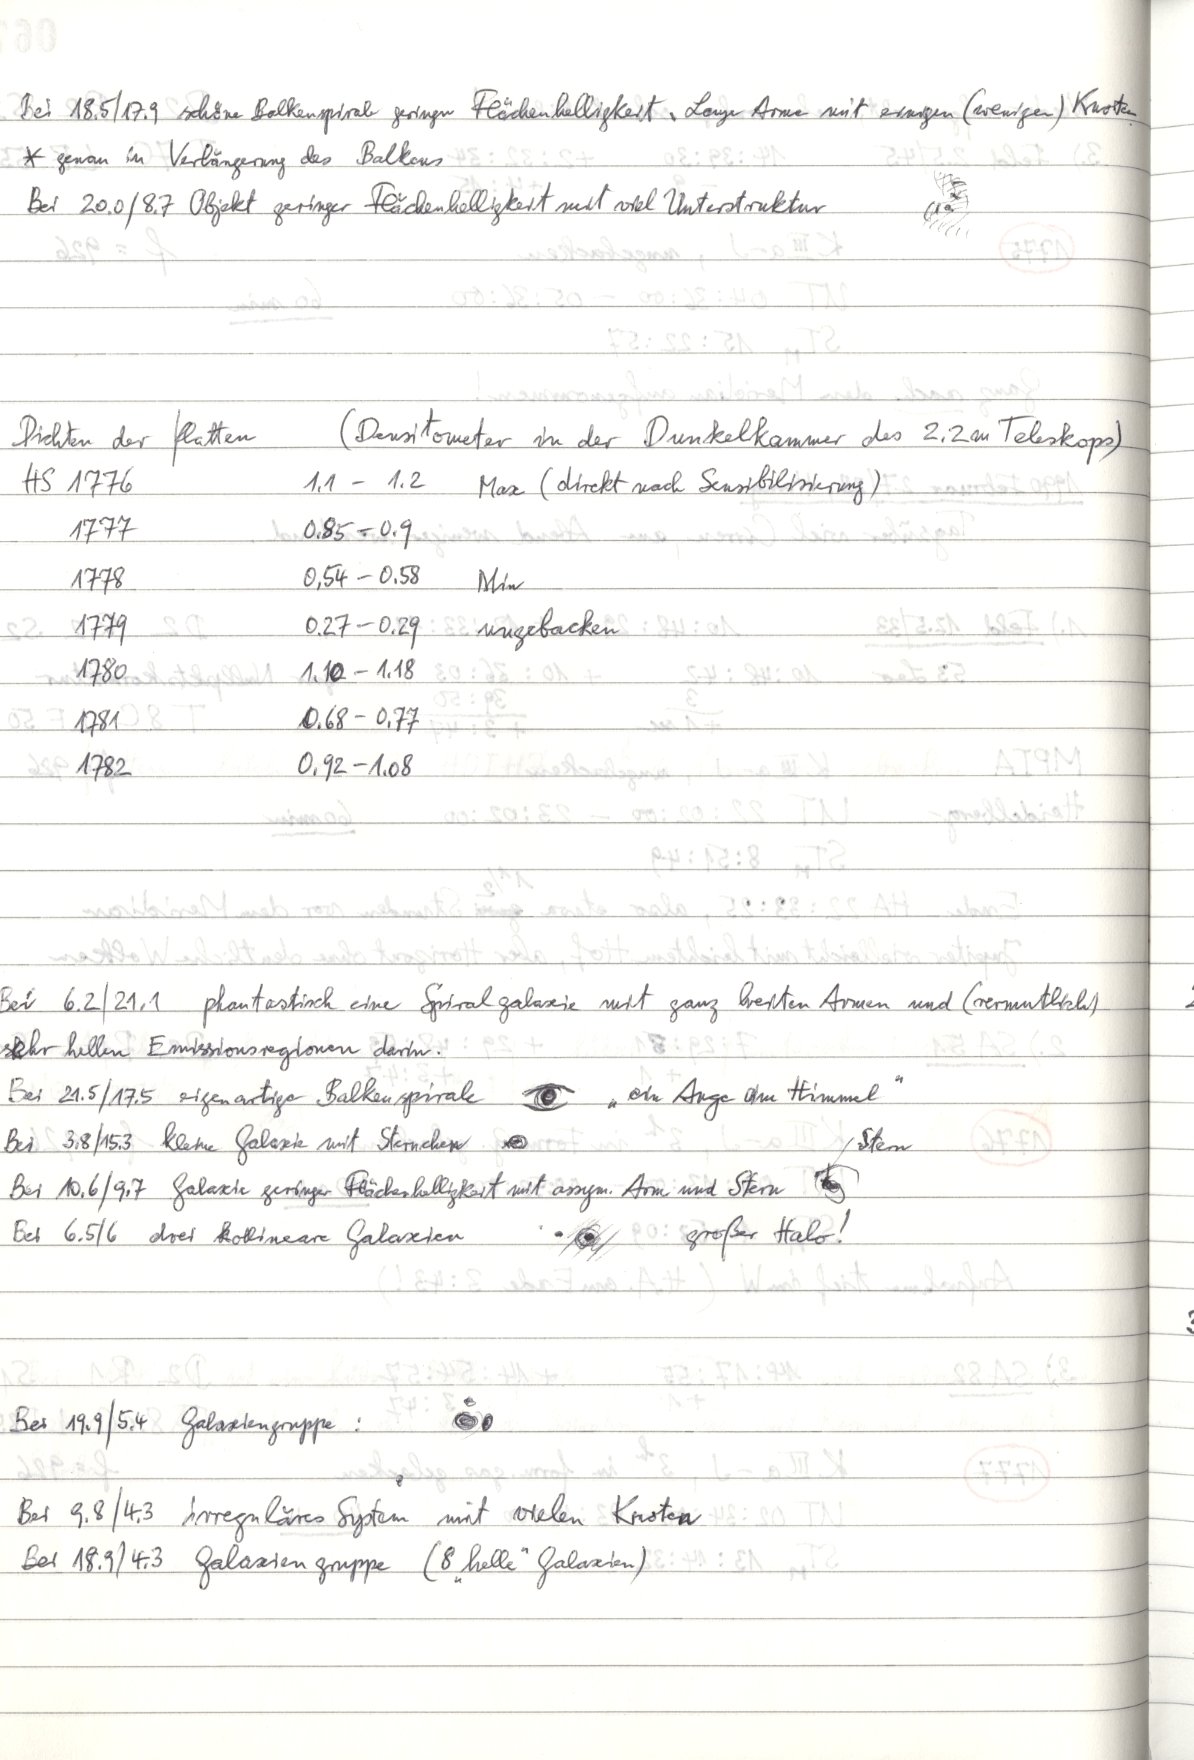 Bei 18.5/17.9 schöne Balkenspirale geringer Flächenhelligkeit, Lange Arme mit einigen (wenigen) Knoten
* genau in Verlängerung des Balkens
Bei 20.0/8.7 Objekt geringer Flächenhelligkeit mit viel Unterstruktur
Dichten der Platten (Densitometer in der Dunkelkammer des 2.2m Teleskops)
HS 1776 1.1 - 1.2 Max (direkt nach Sensibilisierung)
1777 0.85 - 0.9
1778 0,54 - 0.58 Min
1779 0.27 - 0.29 ungebacken
1780 1.10 - 1.18
1781 0.68 - 0.77
1782 0,92 - 1.08
Bei 6.2/21.1 phantastisch eine Spiralgalaxie mit ganz breiten Armen und (vermutlich)
sehr hellen Emissionsregionen darin.
Bei 21.5/17.5 eigenartige Balkenspirale „ein Auge am Himmel"
Bei 3.8/15.3 kleine Galaxie mit Sternchen
Stern
Bei 10.6/9.7 Galaxie geringer Flächenhelligkeit mit assym. Arm und Stern
Bei 6.5/6 drei kollineare Galaxien großer Halo!
Bei 19.9/5.4 Galaxiengruppe :
Bei 9.8/4.3 irreguläres System mit vielen Knoten
Bei 18.9/4.3 Galaxiengruppe (8 „helle" Galaxien)